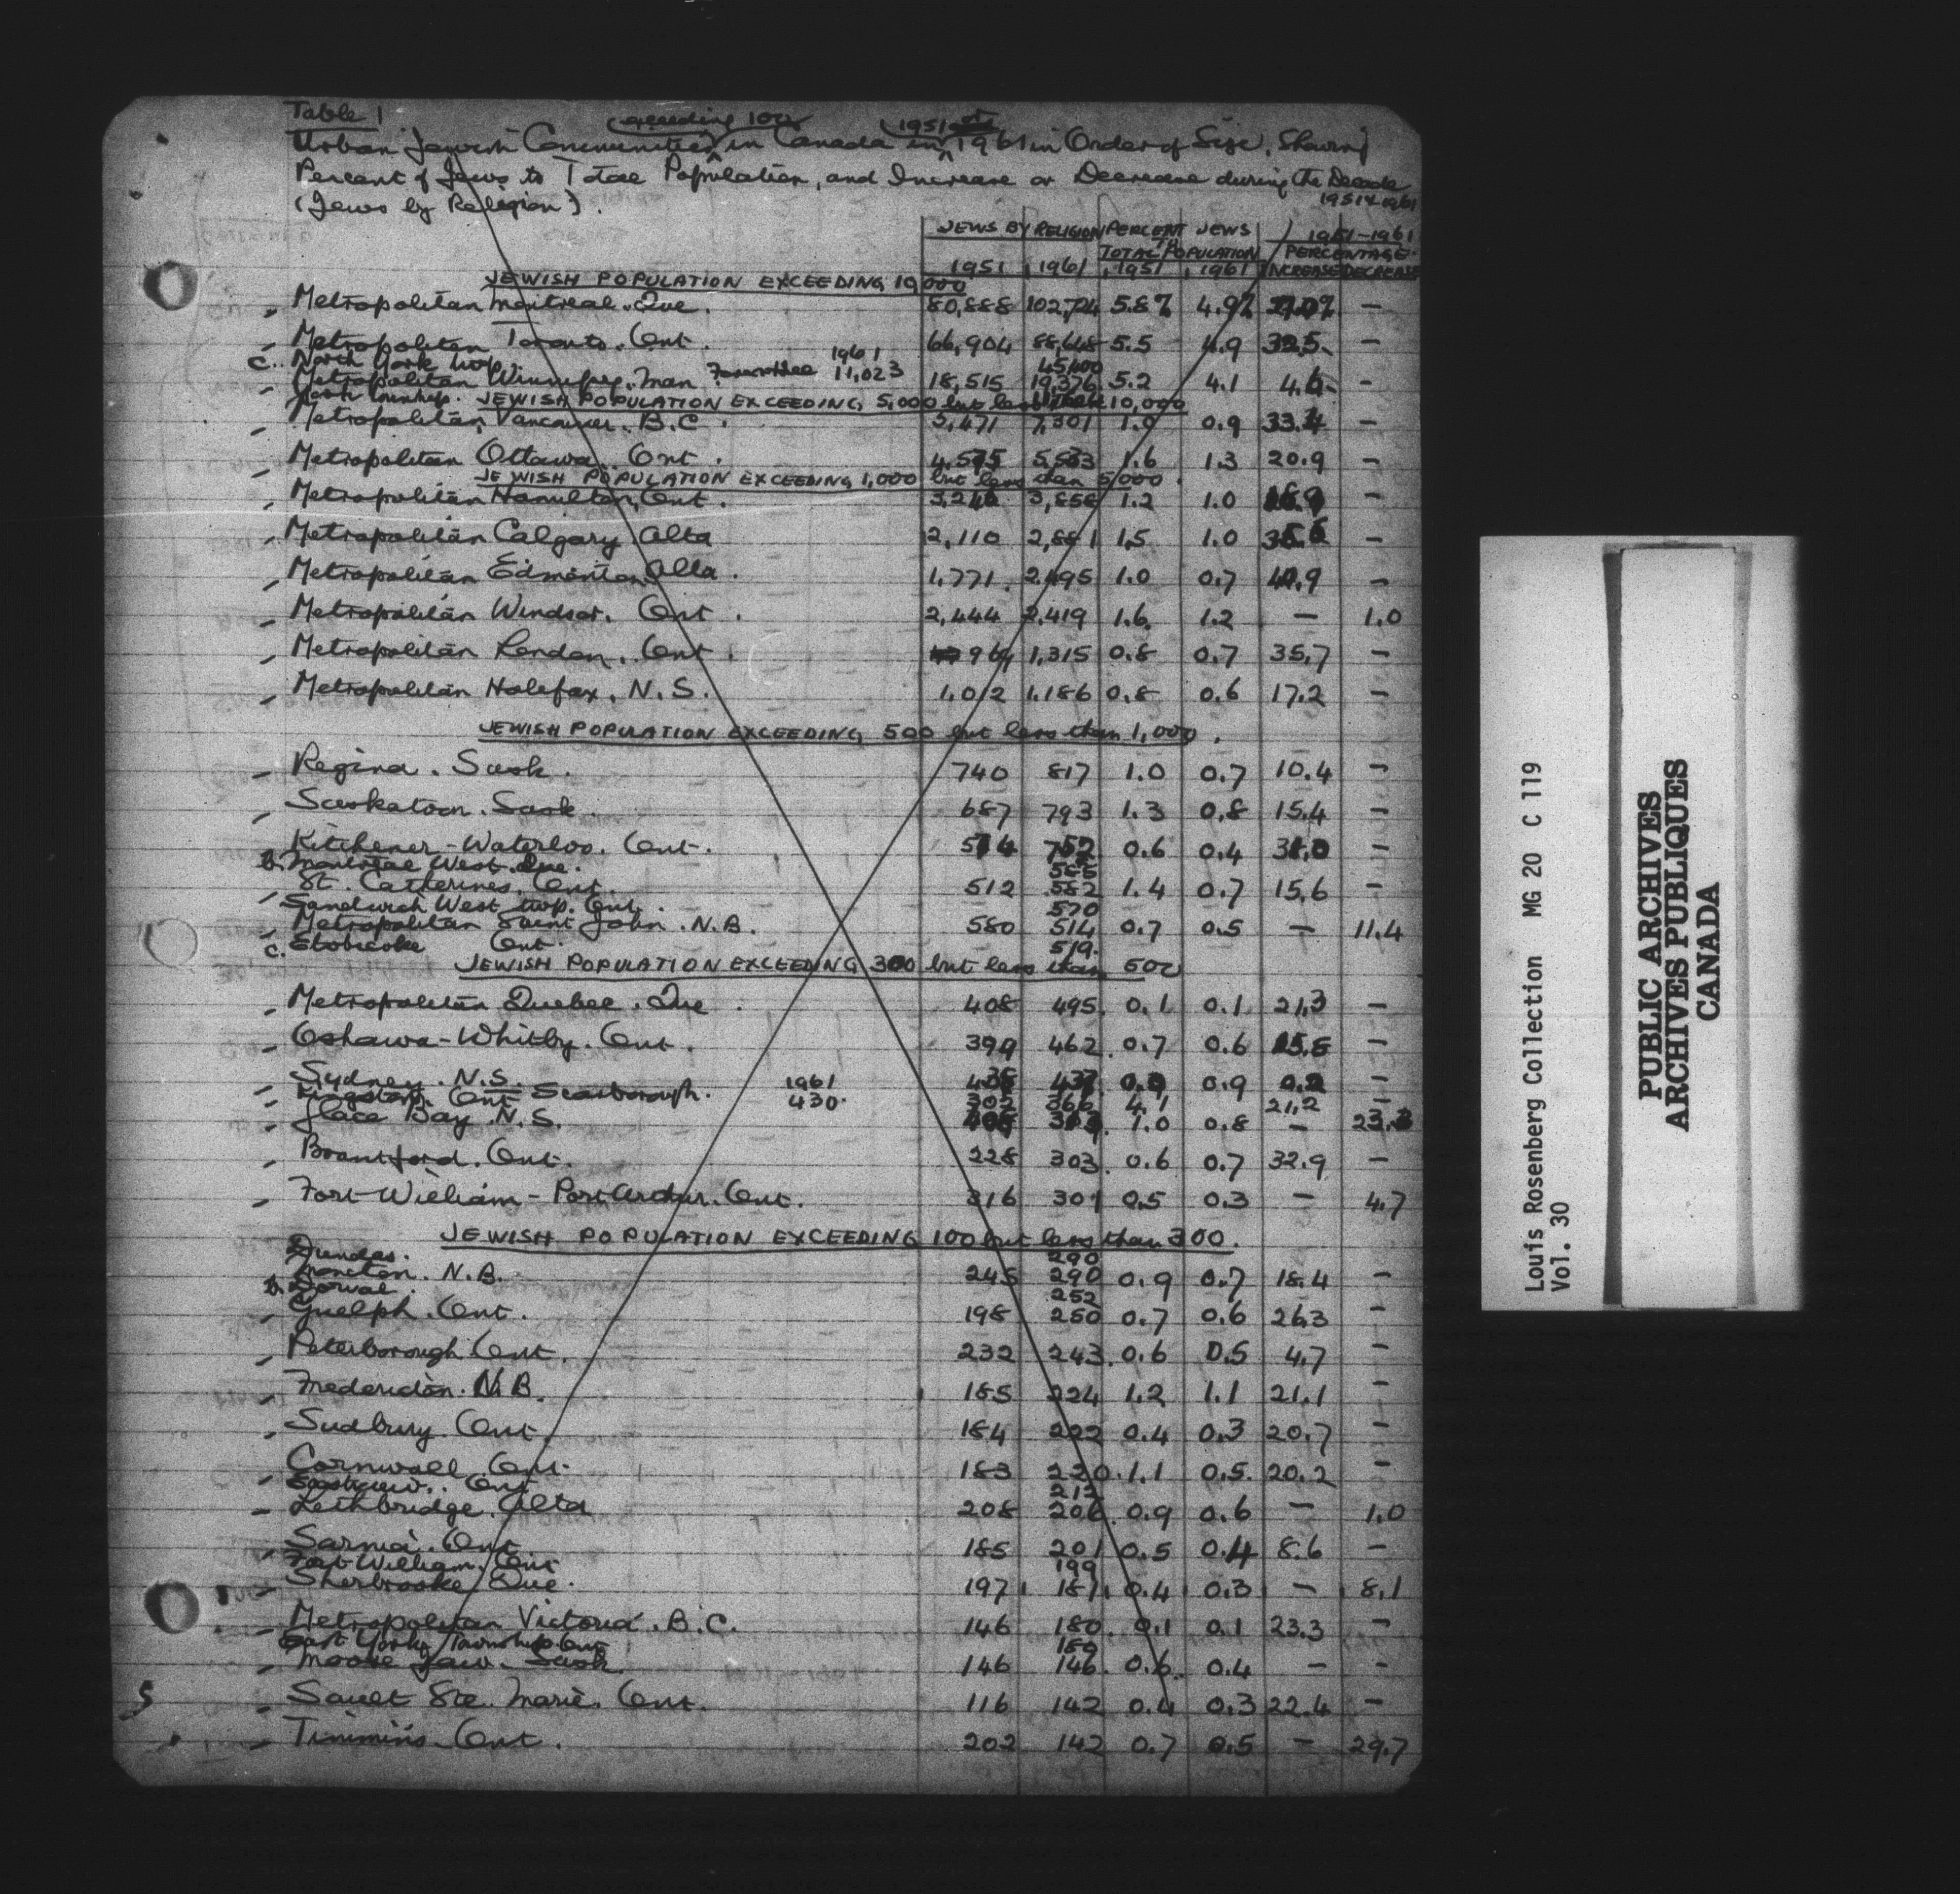 Table 1
exceeding 100 1951 and
Urban Jewish Communities in Canada in 1961 in Order of Size, Showing
Percent of Jews to Total Population, and Increase or Decrease during the Decade
(Jews by Religion). 1951-1961
JEWS BY RELIGION PERCENT JEWS 1951-1961
TO TOTAL POPULATION PERCENTAGE
1951 1961 1951 1961 INCREASE DECREASE
JEWISH POPULATION EXCEEDING 10,000
Metropolitan Montreal. Que. 80,888 102,724 5.8% 4.9% —
Metropolitan Toronto. Ont. 66,904 88,648 5.5 4.9 32.5 —
c. North York twp. 45,100
Metropolitan Winnipeg. Man 1961 11,023 18,515 19,376 5.2 4.1 4.6 —
York Township.
JEWISH POPULATION EXCEEDING 5,000 but less than 10,000
Metropolitan Vancouver. B.C. 5,471 7,301 1.0 0.9 33.4 —
Metropolitan Ottawa. Ont. 4,575 5,533 1.6 1.3 20.9 —
JEWISH POPULATION EXCEEDING 1,000 but less than 5,000.
Metropolitan Hamilton, Ont. 3,858 1.2 1.0 —
Metropolitan Calgary. Alta 2,110 2,881 1.5 1.0 —
Metropolitan Edmonton Alta. 1,771 2,495 1.0 0.7 40.9 —
Metropolitan Windsor. Ont. 2,444 2,419 1.6 1.2 — 1.0
Metropolitan London. Ont. 969 1,315 0.8 0.7 35.7 —
Metropolitan Halifax. N.S. 1,012 1,186 0.8 0.6 17.2 —
JEWISH POPULATION EXCEEDING 500 but less than 1,000.
Regina. Sask. 740 817 1.0 0.7 10.4 —
Saskatoon. Sask. 687 793 1.3 0.8 15.4 —
Kitchener-Waterloo. Ont. 574 752 0.6 0.4 31.0 —
b. Montreal West. Que. 585
St. Catherines. Ont. 512 582 1.4 0.7 15.6 —
Sandwich West twp. Ont. 570
Metropolitan Saint John. N.B. 580 514 0.7 0.5 — 11.4
c. Etobicoke Ont. 519.
JEWISH POPULATION EXCEEDING 300 but less than 500
Metropolitan Quebec. Que. 408 495 0.1 0.1 21.3 —
Oshawa-Whitby. Ont. 399 462 0.7 0.6 15.8 —
Sydney. N.S. 437 0.9 0.2 —
Kingston. Ont Scarborough. 1961 430. 302 366 4.1 21.2
Glace Bay. N.S. 1.0 0.8 —
Brantford. Ont. 228 303 0.6 0.7 32.9 —
Fort William - Port Arthur. Ont. 316 301 0.5 0.3 — 4.7
JEWISH POPULATION EXCEEDING 100 but less than 300.
Dundas. 290
Moncton. N.B. 245 290 0.9 0.7 18.4 —
b. Dorval. 252
Guelph. Ont. 198 250 0.7 0.6 26.3 —
Peterborough Ont. 232 243 0.6 0.5 4.7 —
Fredericton. N.B. 185 224 1.2 1.1 21.1 —
Sudbury. Ont. 184 222 0.4 0.3 20.7 —
Cornwall. Ont. 183 220 1.1 0.5 20.2 —
Eastview. Ont 212
Lethbridge. Alta 208 206 0.9 0.6 — 1.0
Sarnia. Ont 185 201 0.5 0.4 8.6 —
Fort William. Ont 199
Sherbrooke Que. 197 181 0.4 0.3 — 8.1
Metropolitan Victoria. B.C. 146 180 0.1 0.1 23.3 —
East York Township. Ont 180
Moose Jaw. Sask. 146 146 0.6 0.4 — —
Sault Ste. Marie. Ont. 116 142 0.4 0.3 22.4 —
Timmins. Ont. 202 142 0.7 0.5 — 29.7
5
Louis Rosenberg Collection MG 20 C 119
Vol. 30
PUBLIC ARCHIVES
ARCHIVES PUBLIQUES
CANADA